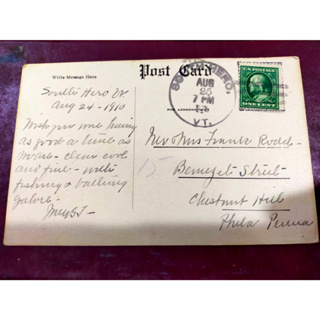 Write Message Here
South Hero Vt
Aug 24 - 1910
Wish you were having
as good a time as
we are - clear cool
and fine - with
fishing & bathing
galore -
Post Card
SOUTH HERO,
AUG
25
7 PM
VT.
U.S. POSTAGE
ONE CENT
Mr & Mrs Frank Rodd -
Benezet Street -
Chestnut Hill
Phila Penna
15